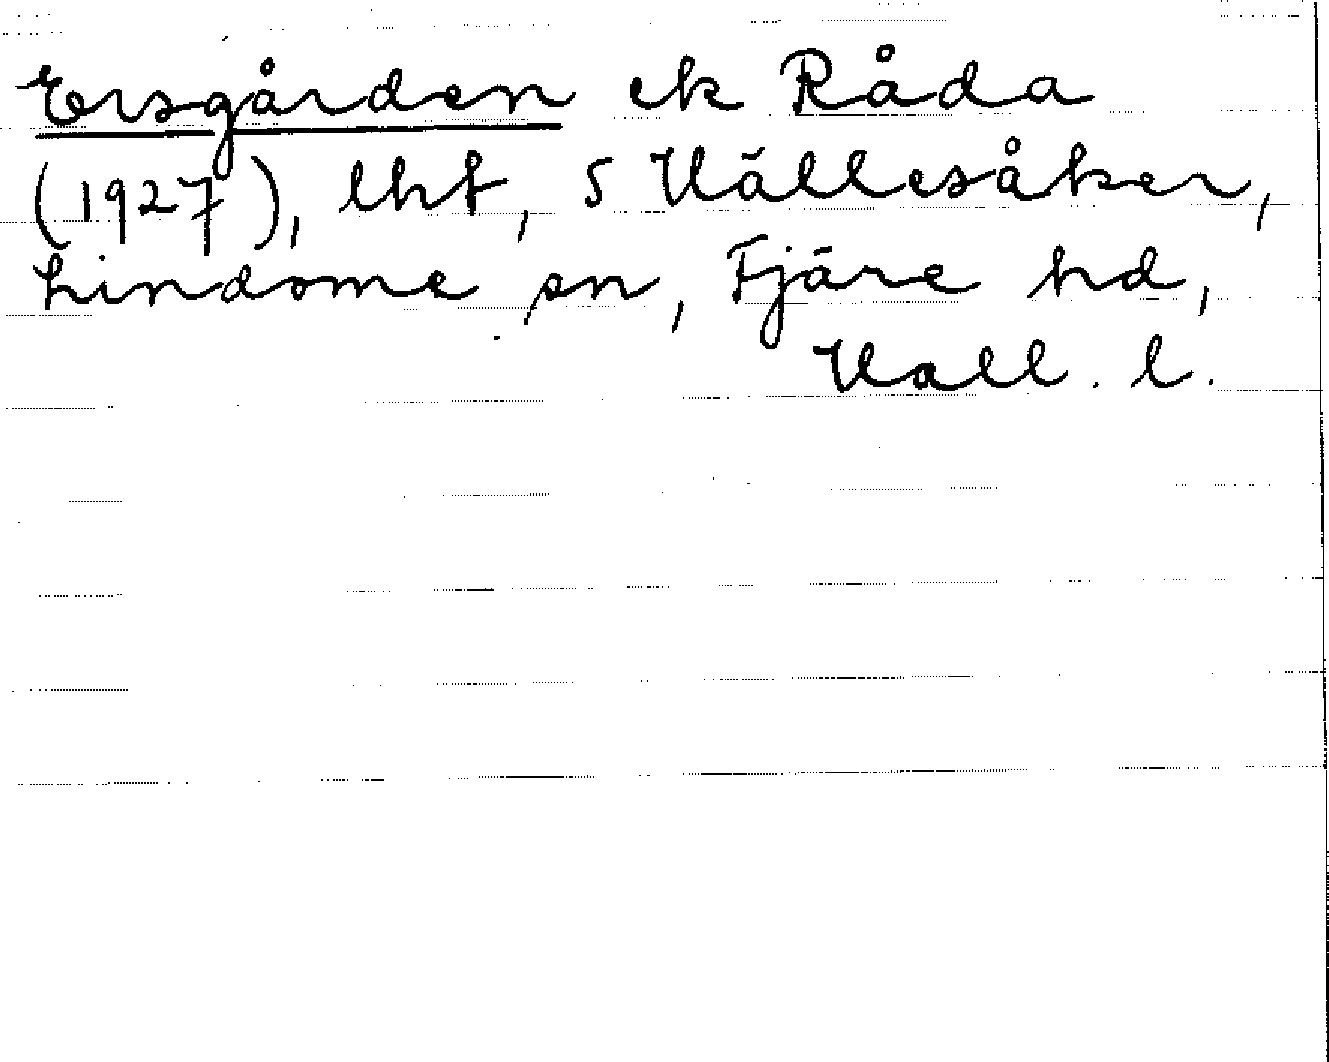 Ersgården ek Råda
(1927), lht, S Hällesåker,
Lindome sn, Fjäre hd,
Hall. l.